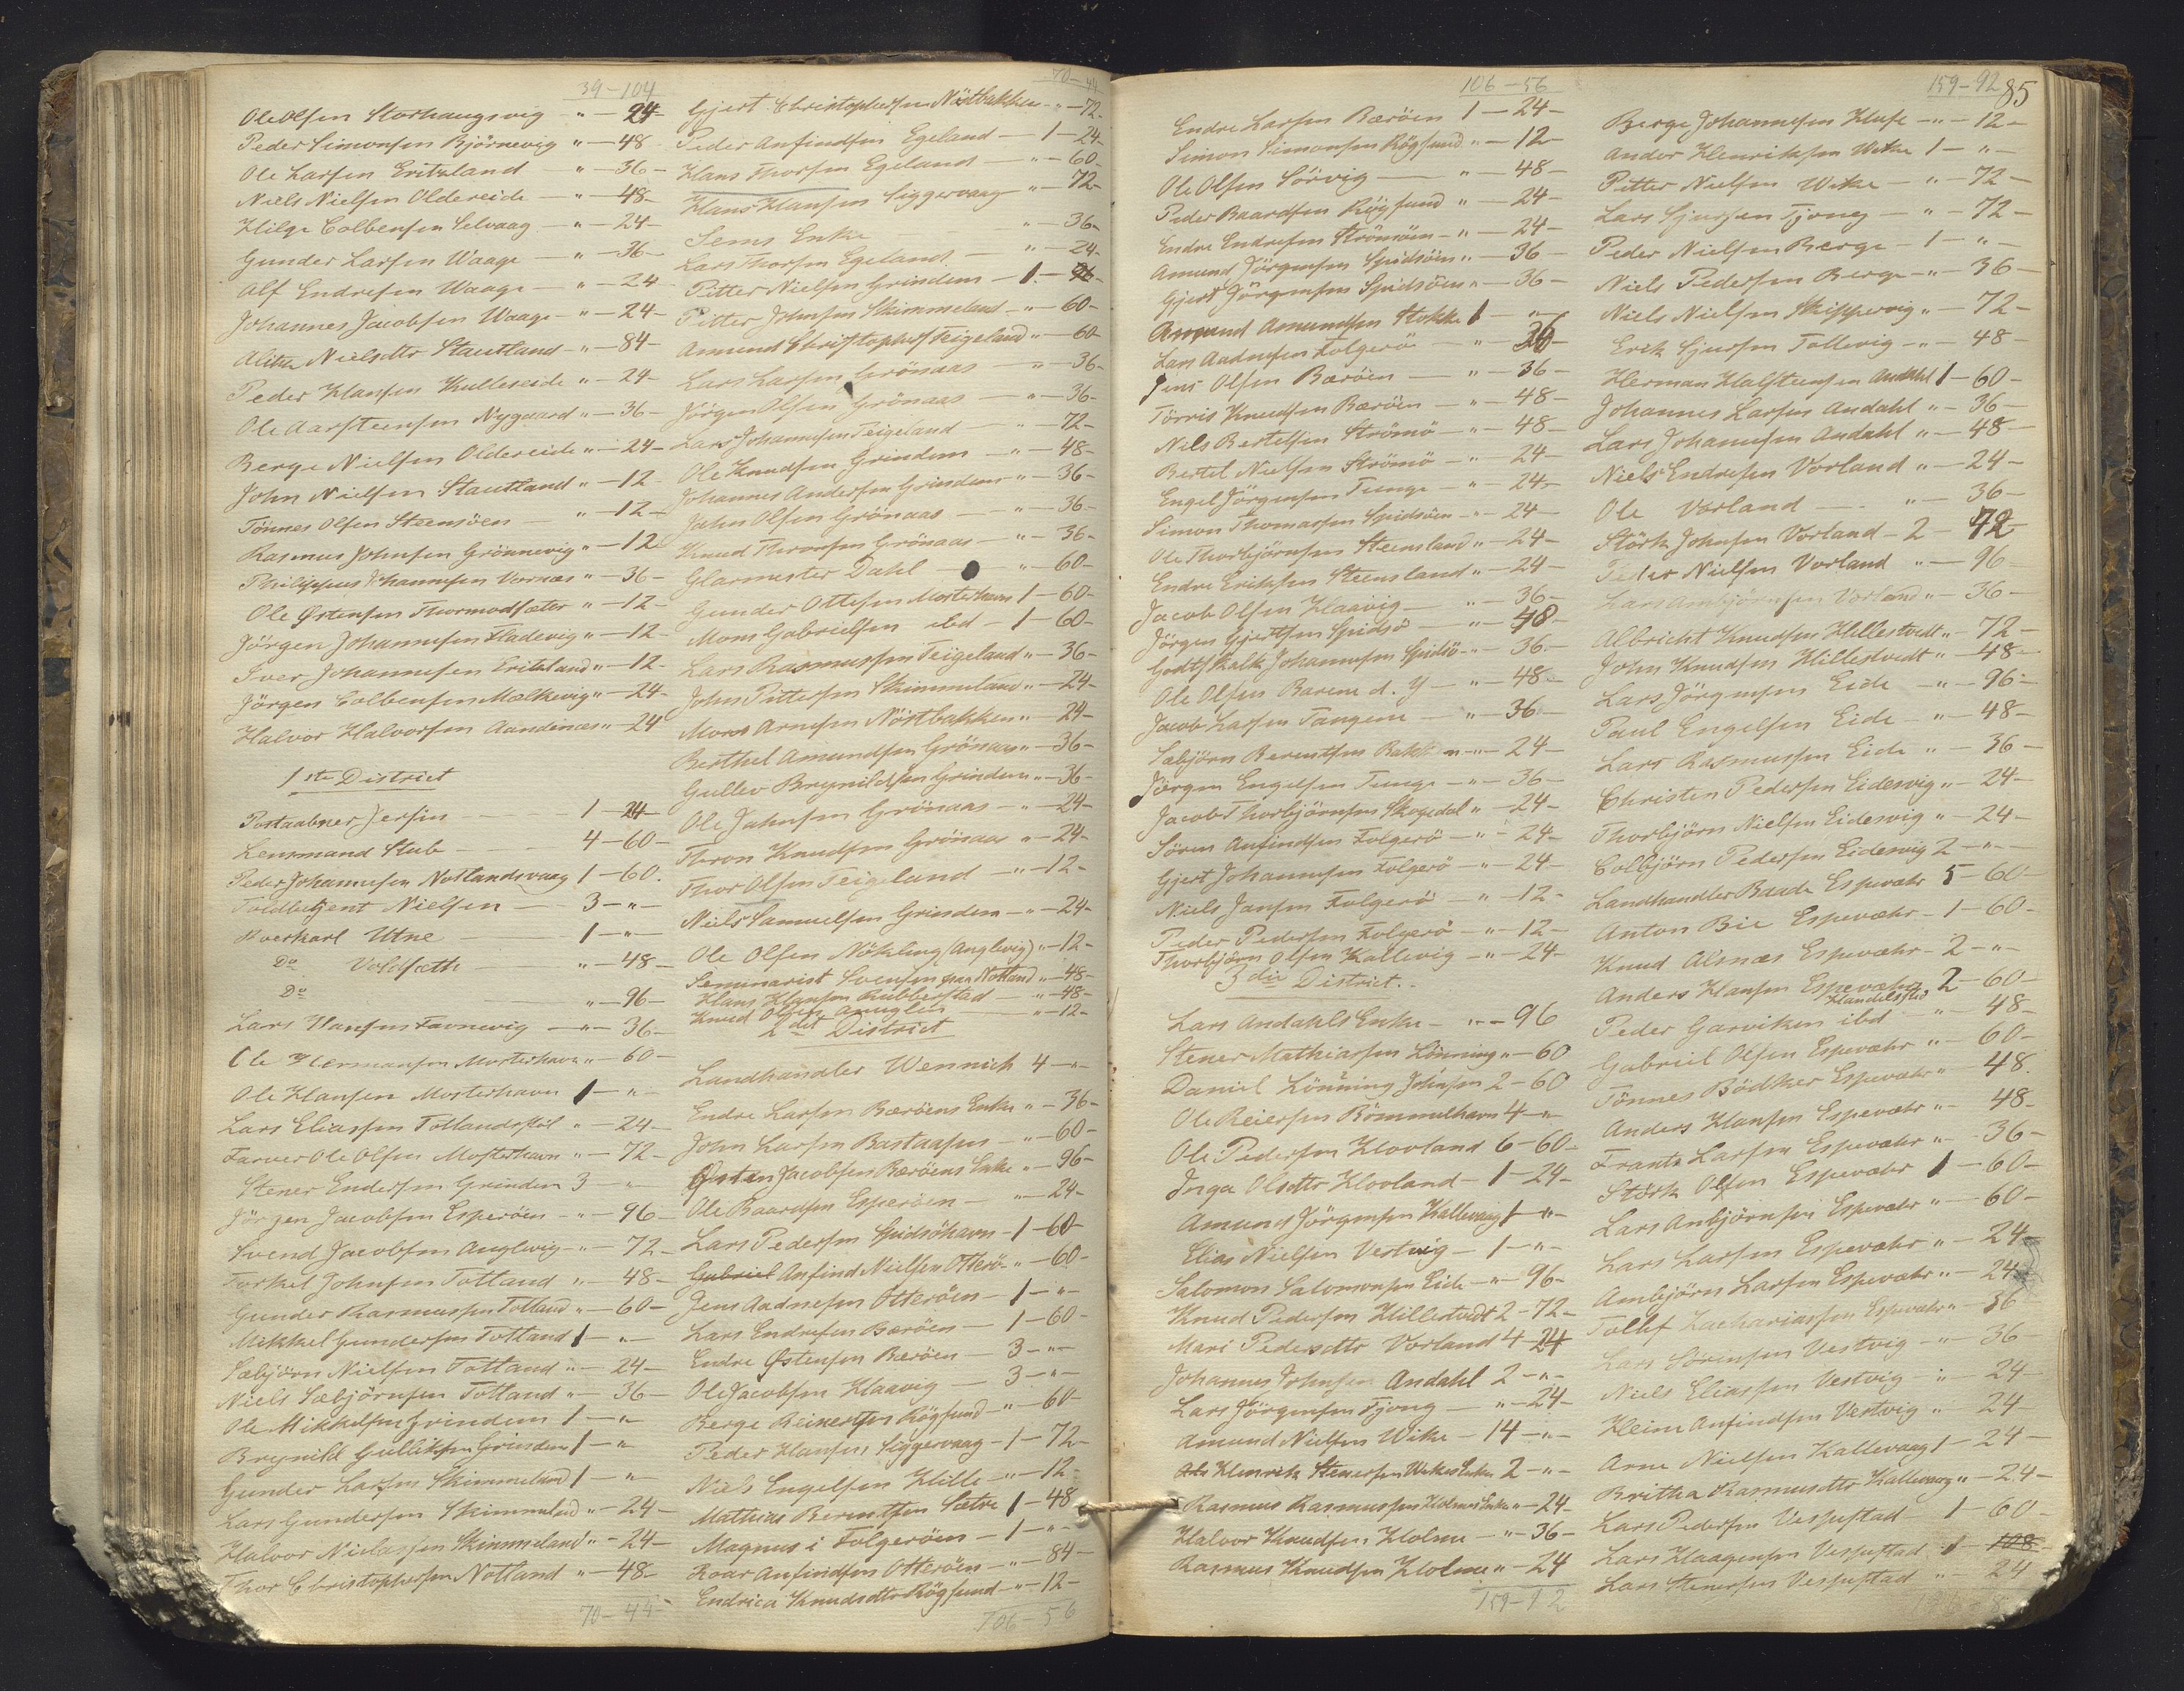 39-104
Ole Olsen Storhaugsvig " - 24
Peder Simonsen Björnevig " - 48
Ole Larsen Eritzland " - 36-
Niels Nielsen Oldereide - " - 48-
Hilge Colbensen Selvaag - " - 24-
Gunder Larsen Waage - " - 36-
Alf Endresen Waage - " - 24
Johannes Jacobsen Waage - " - 24-
Alitza Nielsdtr Stautland - " - 84-
Peder Hansen Kulleseide " - 24-
Ole Aarsteensen Nygaard " - 36-
Berge Nielsen Oldereide " - 24-
John Nielsen Stautland " - 12-
Tönnes Olsen Steensöen - " - 12-
Rasmus Johnsen Grönnevig " - 12
Philippus Johannesen Vornæs " - 36-
Ole Østensen Thormodsæter " - 12-
Jörgen Johannesen Fladevig " - 12-
Iver Johannesen Eritzland " - 12-
Jörgen Colbensen Mælkevig " - 24-
Halvor Halvorsen Aandenæs " - 24
1ste District
Postaabner Jersin - 1 - 24-
Lensmand Stub - 4 - 60-
Peder Johannesen Notlandsvaag 1 - 60.
Toldbetjent Nielsen - 3 - " -
Overkarl Utne - 1 - " -
Do Voldsæth - " - 48-
Do - " - 96-
Lars Hansen Favnevig - " - 36-
Ole Hermansen Mosterhavn " - 60-
Ole Hansen Mosterhavn 1 - " -
Lars Eliassen Totlandsstöl " - 24-
Farver Ole Olsen Mosterhavn " - 72-
Stener Endersen Grinden 3 - " -
Jörgen Jacobsen Esperöen - " - 96-
Svend Jacobsen Anglevig - " - 72-
Torkel Johnsen Totland " - 48-
Gunder Rasmussen Totland " - 60-
Mikkel Gundersen Totland 1 - " -
Sæbjörn Nielsen Totland " - 24-
Niels Sæbjörnsen Totland " - 36-
Ole Mikkelsen Grindem 1 - " -
Brynild Gulliksen Grinden 1 - " -
Gunder Larsen Skimmeland 1 - " -
Lars Gundersen Skimmeland " - 24-
Halvor Nielassen Skimmeland " - 24-
Thor Christophersen Notland " - 48-
70-44-
70-44
Gjert Christophersen Nöstbakken - " - 72-
Peder Anfindsen Egeland - 1 - 24-
Hans Thorsen Egeland - " - 60-
Hans Hansen Siggervaag " - 72-
Sems Enke " - 36-
Lars Thorsen Egeland - " - 24-
Pitter Nielsen Grindem - 1 - 96-
Pitter Johnsen Skimmeland - " - 60-
Amund Christophers. Teigeland " - 60
Lars Larsen Grönaas - " - 36-
Jörgen Olsen Grönaas - " - 36-
Lars Johannesen Teigeland - " - 72-
Ole Knudsen Grindem - " - 48-
Johannes Andersen Grindem " - 36-
John Olsen Grönaas - " - 36-
Knud Thronsen Grönaas - " - 36-
Glarmester Dahl - " - 60-
Gunder Ottesen Mosterhavn 1 - 60-
Mons Gabrielsen ibd - 1 - 60-
Lars Rasmussen Teigeland " - 36-
John Pittersen Skimmeland " - 24-
Mons Arnesen Nöstbakken " - 24-
Berthel Amundsen Grönaas " - 36-
Gullev Brynildsen Grindem " - 36-
Ole Johnsen Grönaas - " - 24-
Thron Knudsen Grönaas " - 24-
Thor Olsen Teigeland - " - 12-
Niels Samuelsen Grindem - " - 24-
Ole Olsen Nökling (Anglevig) " - 12-
Seminarist Svensen Notland " - 48-
Hans Hansen Rubbestad - " - 48-
Knud Olsen - " - 12-
2det District
Landhandler Wennich 4 - " -
Endre Larsen Bæröens Enke " - 36-
John Larsen Bastaasen - " - 60-
Østen Jacobsen Bæröens Enke " - 96-
Ole Baardsen Esperöen - " - 24-
Lars Pedersen Spidsöhavn - 1 - 60-
Gabriel Anfind Nielsen Otterö - " - 60-
Jens Aadnesen Otteröen - 1 - " -
Lars Endresen Bæröen - 1 - 60-
Endre Østensen Bæröen - 3 - " -
Ole Jacobsen Klaavig - 3 - " -
Berge Reinertsen Rögsund - " - 60-
Peder Hansen Siggervaag - 1 - 72-
Niels Engelsen Hille - " - 12-
Mathias Berentsen Sætre 1 - 48
Magnus i Folgeröen - 1 - " -
Roar Anfindsen Otteröen - " - 84-
Endrica Knudsdtr Rögsund - " - 12-
106-56
106-56
Endre Larsen Bæröen 1 - 24-
Simon Simonsen Rögsund " - 12-
Ole Olsen Sörvig - " - 48-
Peder Baardsen Rögsund " - 24-
Endre Endresen Strömöen - " - 24-
Amund Jörgensen Spidsöen " - 36-
Gjert Jörgensen Spidsöen " - 36-
Amund Amundsen Stokke 1 - " -
Lars Aadnesen Folgerö - " - 36-
Jens Olsen Bæröen - " - 36-
Törris Knudsen Bæröen - " - 48-
Nils Bertelsen Strömö - " - 48-
Bertel Nielsen Strömö - " - 24-
Engel Jörgensen Tunge - " - 24-
Simon Thomassen Spidsöen - " - 24-
Ole Thorbjörnsen Steensland " - 24-
Endre Eriksen Steensland " - 24-
Jacob Olsen Klaavig - " - 36-
Jörgen Gjertsen Spidsö - " - 48-
Godtskalk Johannesen Spidsö - " - 36-
Ole Olsen Barene d. y - " - 48-
Jacob Larsen Tangene - " - 36-
Sæbjörn Berentsen Bakken - " - 24-
Jörgen Engelsen Tunge - " - 36-
Jacob Thorbjörnsen Skogedal " - 24-
Sören Anfindsen Folgerö - " - 24-
Gjert Johannesen Folgerö - " - 24-
Niels Jansen Folgerö - " - 12-
Peder Pedersen Folgerö - " - 12-
Thorbjörn Olsen Kallevig - " - 24-
3die District.
Lars Andahls Enke - " - 96
Stener Mathiassen Lönning " - 60
Daniel Lönning Johnsen 2 - 60
Ole Reiersen Bömmelhavn 4 - " -
Ole Pedersen Hovland 6 - 60-
Inga Olsdtr Hovland - 1 - 24-
Amund Jörgensen Kallevaag 1 - " -
Elias Nielsen Vestvig - 1 - " -
Salomon Salomonsen Eide - " - 96-
Knud Pedersen Hillestvedt 2 - 72-
Mari Pedersdtr Vorland 4 - 24
Johannes Johnsen Andahl 2 - " -
Lars Jörgensen Tjong - " - 24-
Amund Nielsen Wike - 14 - " -
Henrik Stenersen Wikes Enke 2 - " -
Rasmus Rasmussen Holmes Enke " - 24-
Halvor Knudsen Holme - " - 36-
Rasmus Knudsen Holme " - 24
159-92
159-92
85
Berge Johannesen Huse - " - 12-
Ander Henriksen Wike 1 - " -
Pitter Nielsen Wike - " - 72-
Lars Sjursen Tjong - " - 72-
Peder Nielsen Berge - 1 - " -
Niels Pedersen Berge - " - 36-
Niels Nielsen Skippervig " - 72-
Erik Sjursen Tollevig - " - 48-
Herman Halsteensen Andahl 1 - 60-
Johannes Larsen Andahl " - 36-
Lars Johannesen Andahl " - 48-
Niels Endresen Vorland " - 24-
Ole Vorland - " - 36-
Störk Johnsen Vorland - 2 - 72-
Peder Nielsen Vorland " - 96
Lars Ambjörnsen Vorland " - 36-
Albricht Knudsen Hillestvedt " - 72-
John Knudsen Hillestvedt " - 48-
Lars Jörgensen Eide - " - 96-
Paul Engelsen Eide - " - 48-
Lars Rasmussen Eide " - 36-
Christen Pedersen Eidesvig " - 24-
Thorbjörn Nielsen Eidesvig " - 24-
Colbjörn Pedersen Eidesvig 2 - " -
Landhandler Baade Espevæhr 5 - 60-
Anton Bie Espevæhr - 1 - 60-
Knud Alsnæs Espevæhr - 2 - " -
Anders Hansen Espevæhr 2 - 60-
Handelssted
Peder Garviken ibd - " - 48-
Gabriel Olsen Espevæhr " - 60-
Tönnes Bödker Espevæhr " - 48.
Anders Hansen Espevæhr " - 48-
Frants Larsen Espevæhr " - 36-
Störk Olsen Espevæhr 1 - 60-
Lars Anbjörnsen Espevæhr " - 60-
Lars Larsen Espevæhr " - 24-
Ambjörn Larsen Espevæhr " - 24
Tollef Zachariassen Espevæhr " - 36
Lars Sörensen Vestvig - " - 36-
Niels Eliassen Vestvig - " - 24
Heine Anfindsen Vestvig " - 24-
Arne Nielsen Kallevaag 1 - 24-
Britha Rasmusdtr Kallevaag " - 24-
Lars Pedersen Vespestad - 1 - 60-
Lars Haagensen Vespestad 1 - 108-
Lars Stenersen Vespestad " - 24